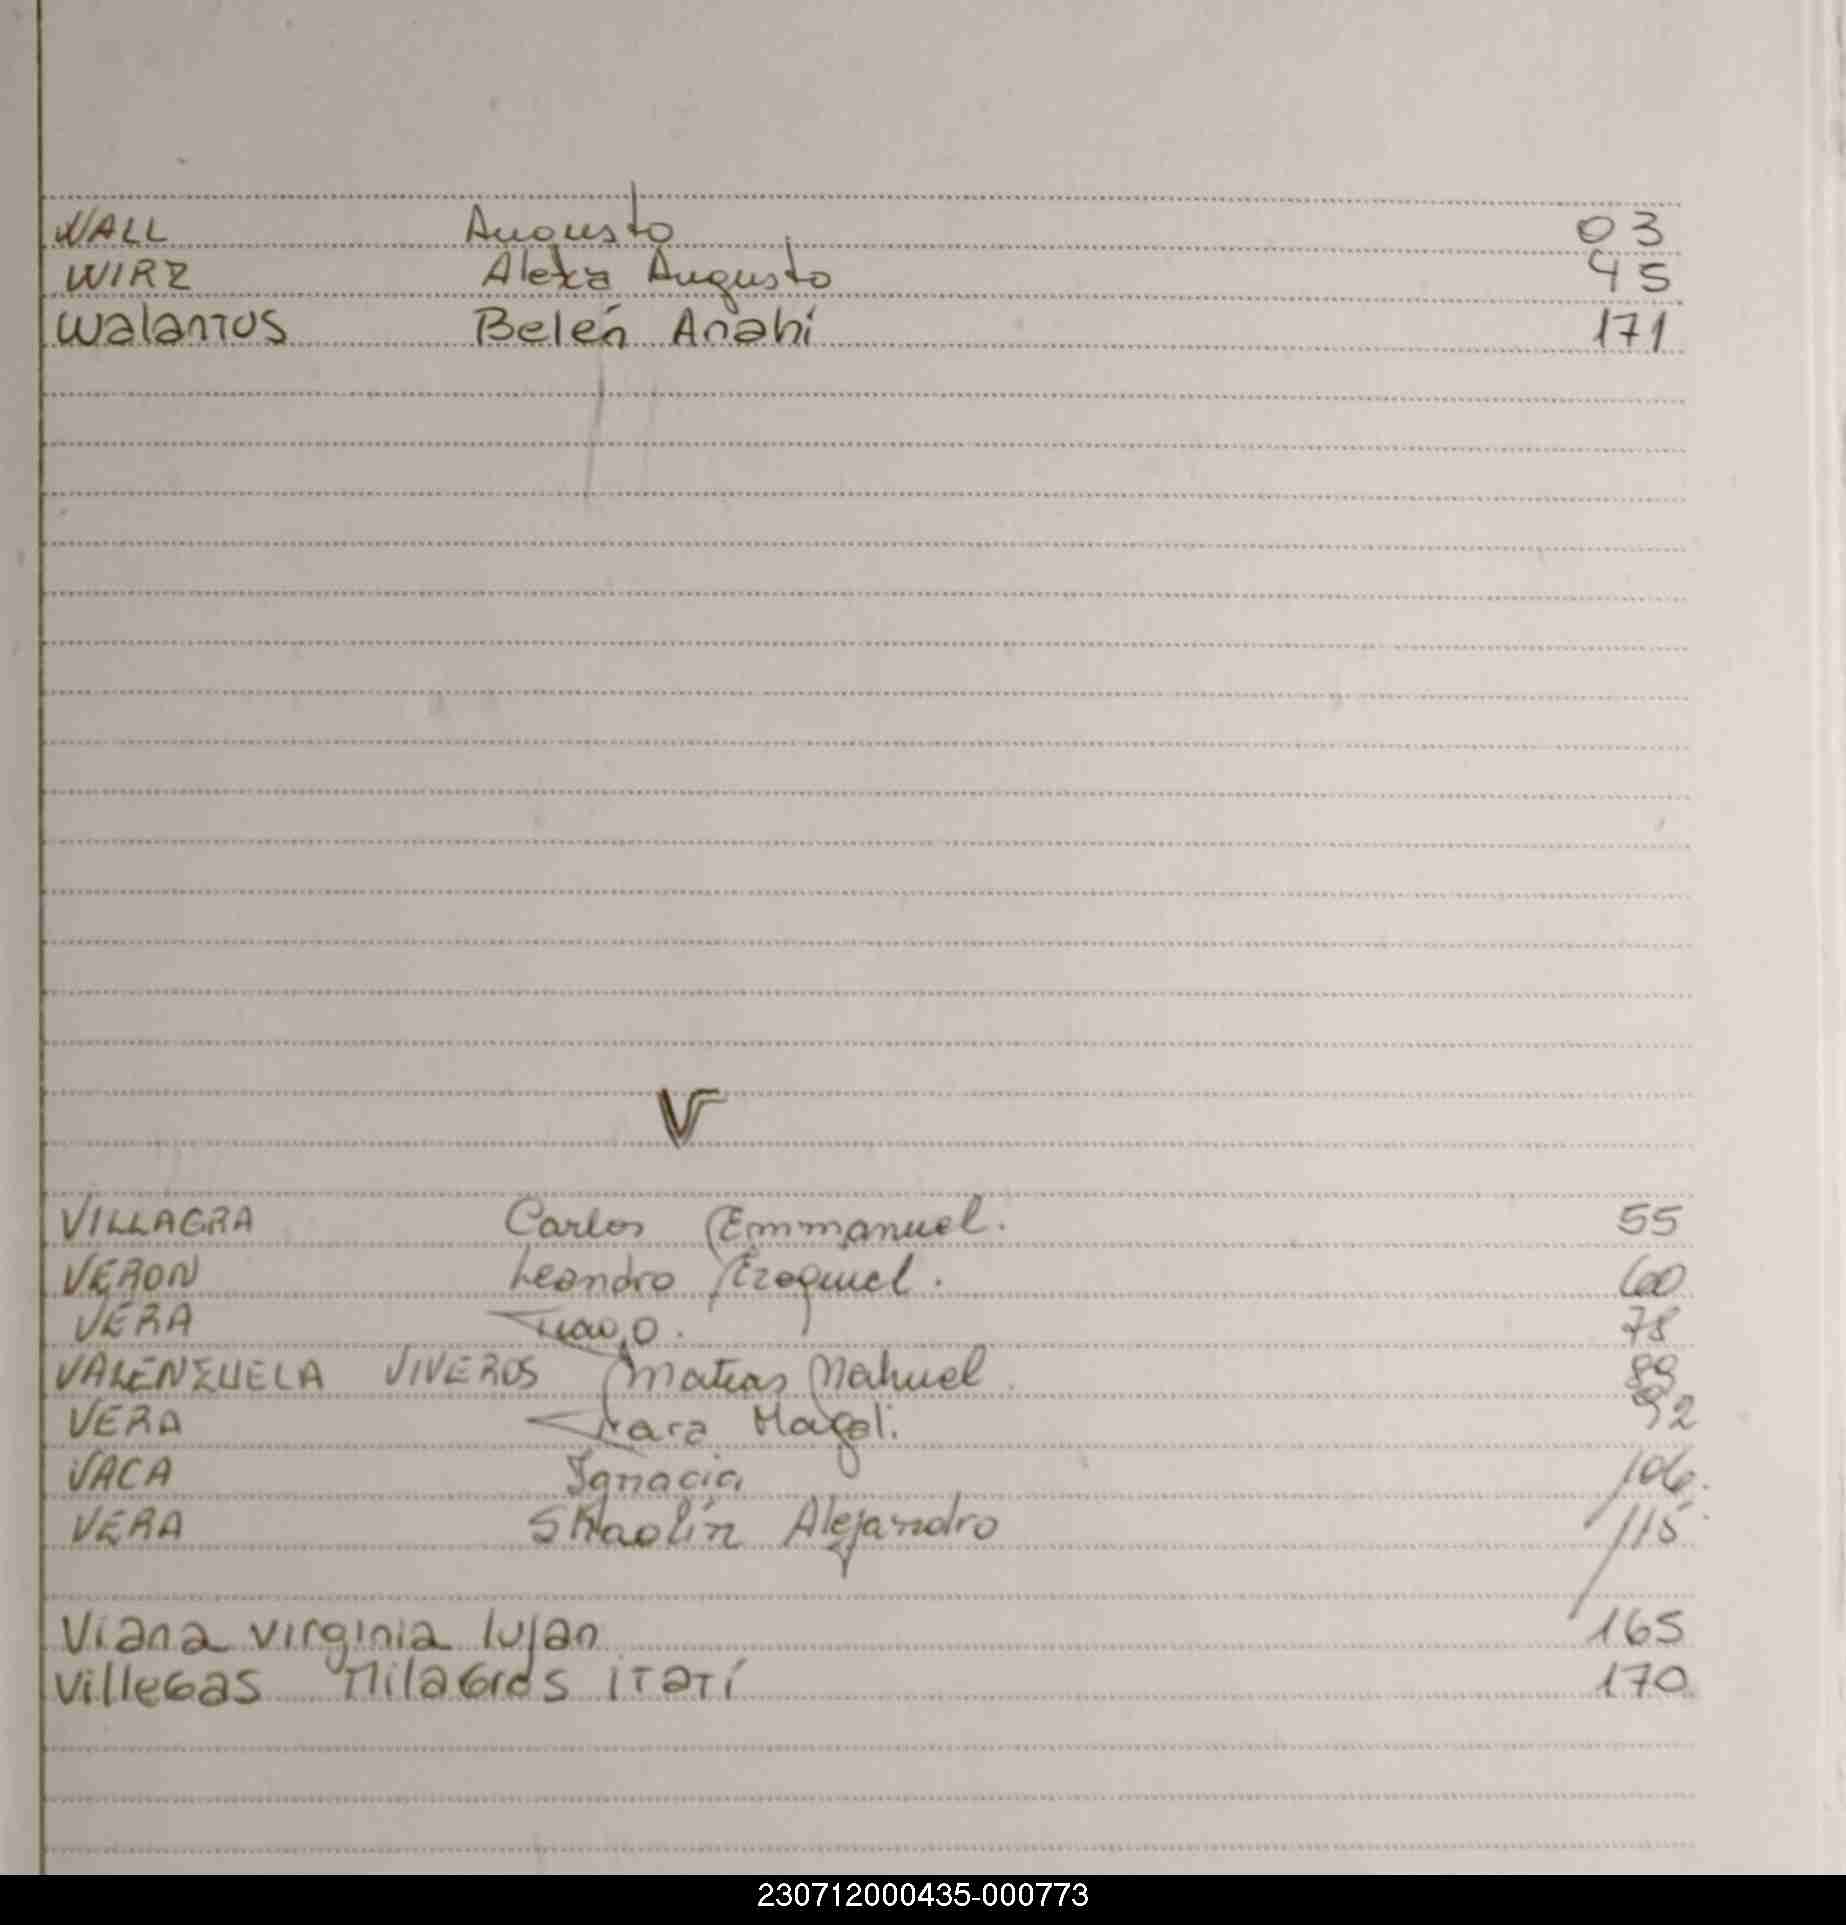 WALL Augusto 03
WIRZ Alexa Augusto 45
Walantus Belén Anahí 171
V
VILLAGRA Carlos Emmanuel. 55
VERON Leandro Ezequiel. 60
VERA 78
VALENZUELA VIVEROS Matias Nahuel 89
VERA Magali. 92
VACA Ignacia 106.
VERA Shaolín Alejandro 115
Viana virginia lujan 165
Villegas Milagros itatí 170
230712000435-000773